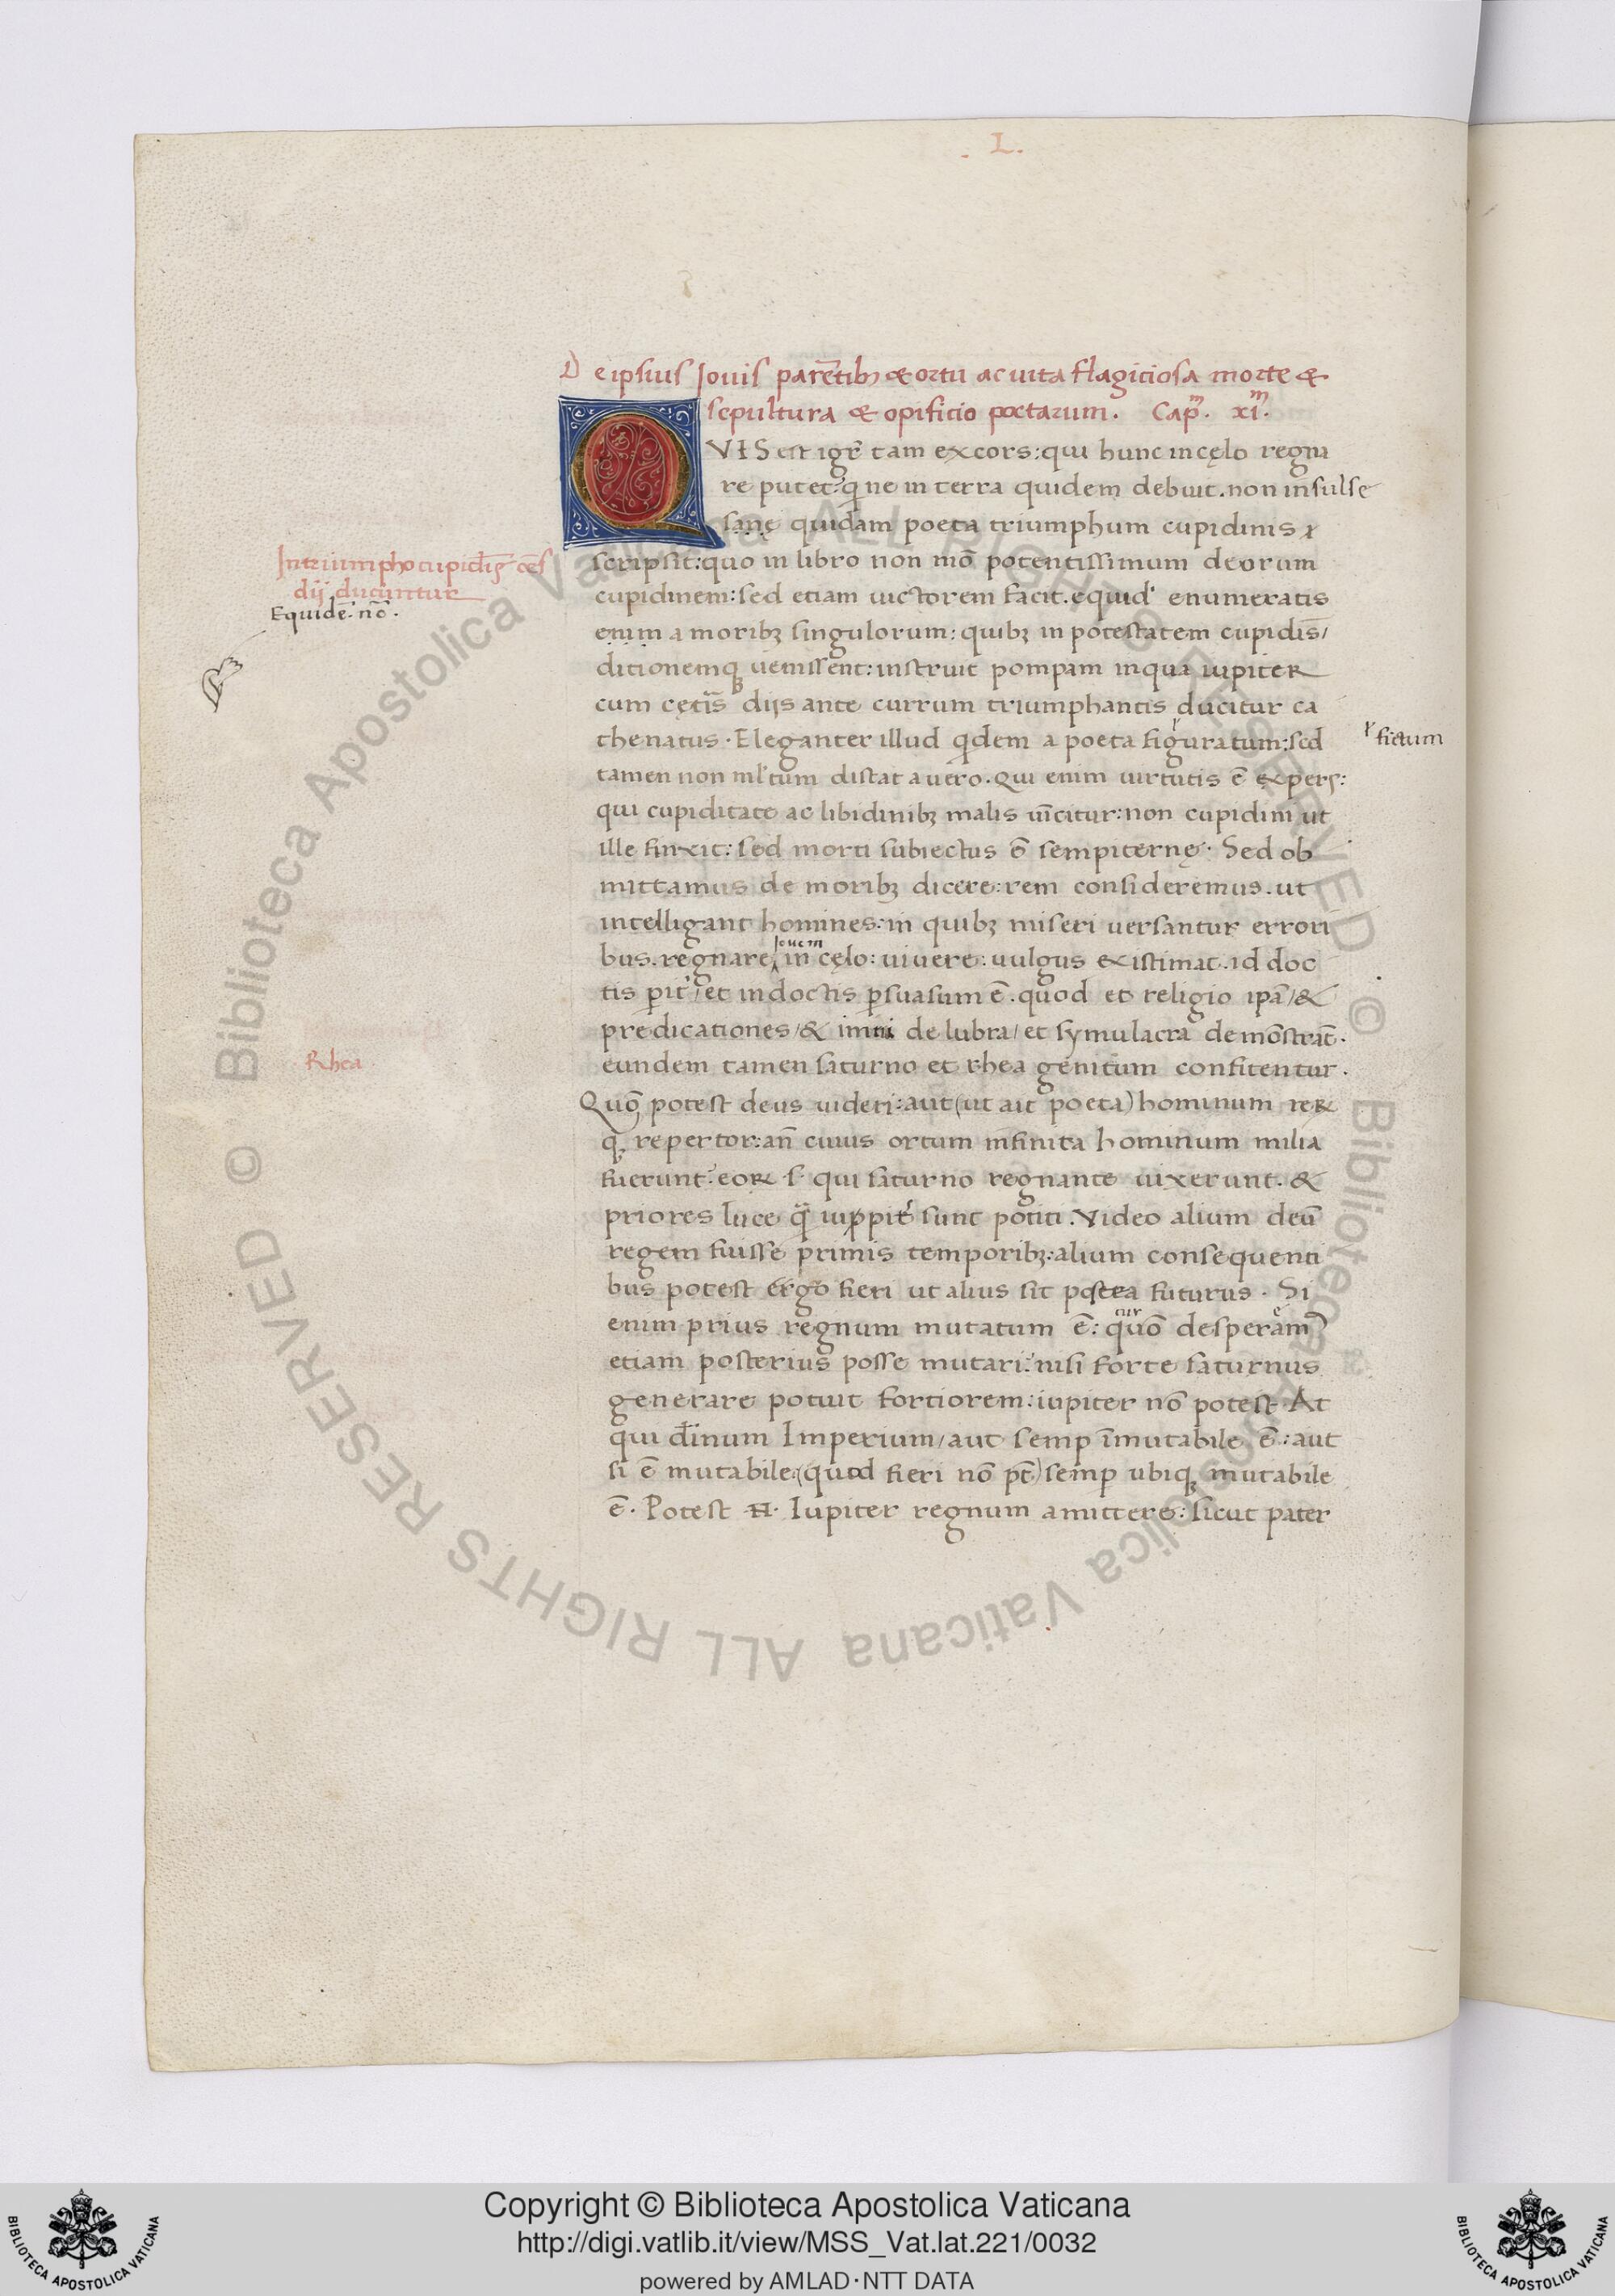 . L .
De ipsius Jovis parētibꝫ & ortu ac uita flagitiosa morte &
sepultura & opificio poetarum. Capᵐ. xiᵐ.
QVIS est igr̄ tam excors: qui hunc in cęlo regna
re putet: qͥ ne in terra quidem debuit. non insulse
sane quidam poeta triumphum cupidinis
scripsit: quo in libro non mō potentissimum deorum
cupidinem: sed etiam uictorem facit. equid' enumeratis
enim amoribꝫ singulorum: quibꝫ in potestatem cupidis̄/
ditionemqꝫ uenissent: instruit pompam in qua iupiter
cum cęt̄is dijs ante currum triumphantis ducitur ca
thenatus. Eleganter illud qͥdem a poeta figuratum: sed
tamen non ml'tum distat a uero. Qui enim uirtutis ē expers:
qui cupiditate ac libidinibꝫ malis uīcitur: non cupidini ut
ille finxit: sed morti subiectus ē sempiternę. Sed ob
mittamus de moribꝫ dicere: rem consideremus. ut
intelligant homines: in quibꝫ miseri uersantur errori
bus. regnare Jouem in cęlo: uiuere: uulgus existimat. id doc
tis pit'/ et indoctis psuasum ē. quod et religio ipā/ &
predicationes/ & delubra/ et symulacra demōstrāt.
eundem tamen saturno et rhea genitum confitentur.
Quō potest deus uideri: aut (ut ait poeta) hominum reꝝ
qꝫ repertor: an̄ cuius ortum infinita hominum milia
fuerunt: eoꝝ s. qui saturno regnante uixerunt. &
priores luce qͣ iuppit' sunt potiti. Video alium deū
regem fuisse primis temporibꝫ: alium consequenti
bus potest ergo fieri ut alius sit postea futurus. Si
enim prius regnum mutatum ē: quō cur desperam⁹ e
etiam posterius posse mutari: nisi forte saturnus
generare potuit fortiorem: iupiter nō potest. At
qui dīnum Imperium/ aut semp īmutabile ē: aut
si ē mutabile (quod fieri nō pt̄) semp ubiqꝫ mutabile
ē. Potest .n. Iupiter regnum amittere: sicut pater
In triumpho cupidīs cēs
dij ducuntur
Equidē. nō.
Rhea
fictum
© Biblioteca Apostolica Vaticana ALL RIGHTS RESERVED © Biblioteca Apostolica Vaticana ALL RIGHTS RESERVED
Copyright © Biblioteca Apostolica Vaticana
http://digi.vatlib.it/view/MSS_Vat.lat.221/0032
powered by AMLAD · NTT DATA
BIBLIOTECA APOSTOLICA VATICANA
BIBLIOTECA APOSTOLICA VATICANA